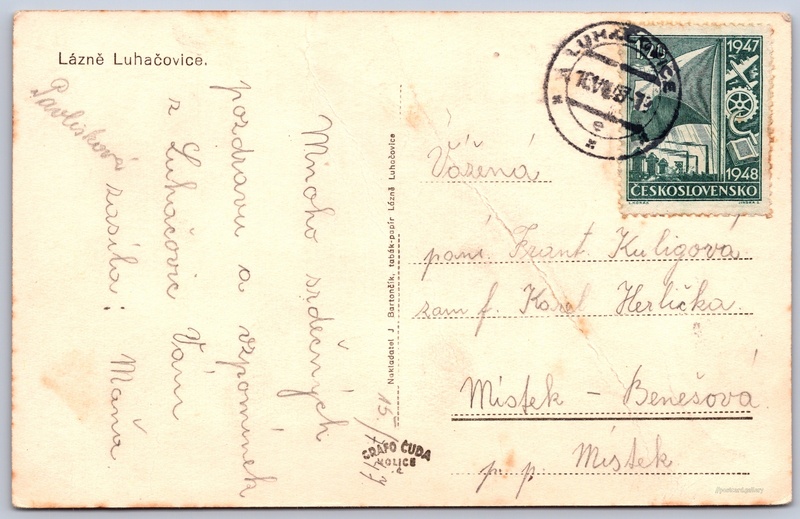 Lázně Luhačovice.
Mnoho srdečných
pozdravu a vzpomínek
z Luhačovic Vám
zasíla: Mařa
Pavlisková
15/7 47
Nakladatel J. Bartončík, tabák-papír Lázně Luhačovice
GRAFO ČUDA
HOLICE
LUHAČOVICE
1947
1948
ČESKOSLOVENSKO
Vážená
paní Frant. Kuligová
zam f. Karel Herlička.
Místek - Benešová
p. p. Místek